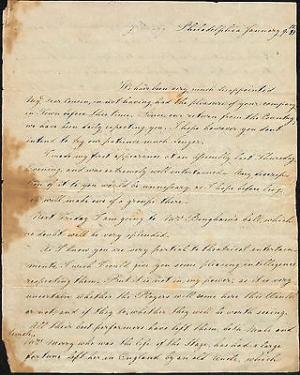 Philadelphia January 9th
We have been very much disappointed
My dear Cousin, in not having had the pleasure of your company
in Town before this time. Since our return from the Country,
we have been daily expecting you. I hope however you dont
intend to try our patience much longer.
I made my first appearance at an Assembly last Thursday
Evening, and was extremely well entertained. Any descrip
tion of it to you would be unnecessary, as I hope before long,
will make one of a groupe there.
Next Friday I am going to Mrs Bingham's ball, which
no doubt will be very splendid.
As I know you are very partial to theatrical entertain
ments, I wish I could give you some pleasing intelligence
respecting them. But it is not in my power, as it is very
uncertain whether the Players will come here this Winter
or not, and if they do, whether they will be worth seeing.
All their best performers have left them, both Male and
Female.
Mrs Merry who was the life of the Stage, has had a large
fortune left her in England by an old Uncle, which